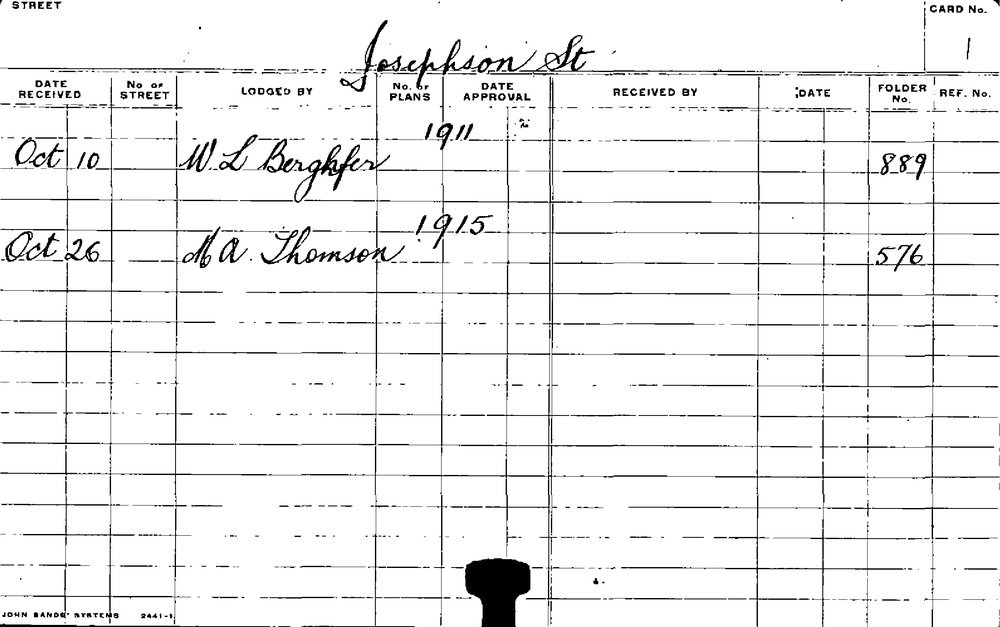 STREET
CARD No.
Josephson St
1
DATE RECEIVED
No OF STREET
LODGED BY
No. OF PLANS
DATE APPROVAL
RECEIVED BY
DATE
FOLDER No.
REF. No.
1911
Oct 10 W L Berghfer 889
1915
Oct 26 M A Thomson 576
JOHN SANDS' SYSTEMS 2441-1